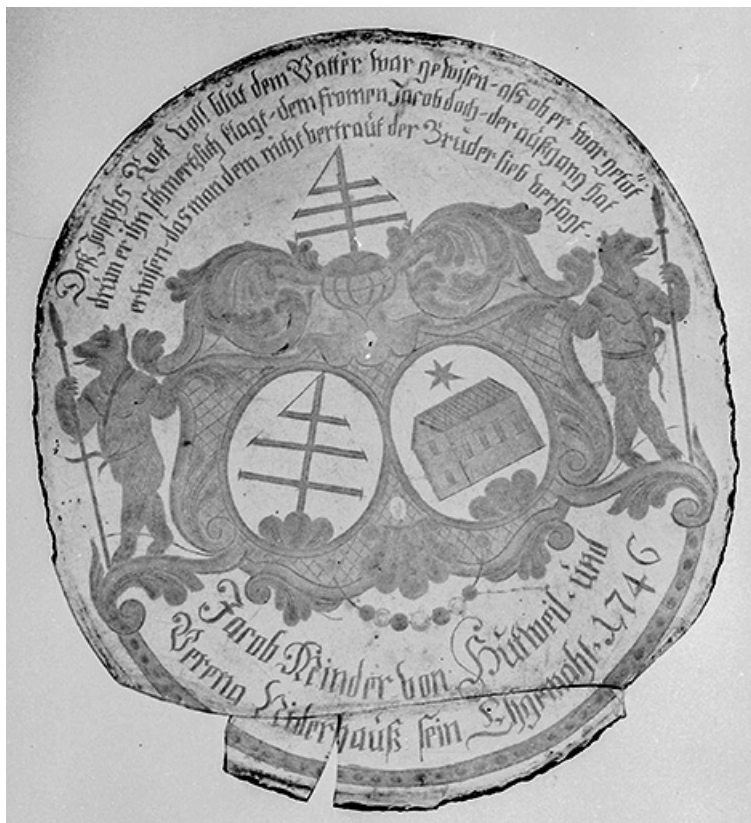 Deß Josephs Rock voll blut dem Vatter war gewisen - als ob er war getöt
drum er ihn schmertzlich klagt - dem fromen Jacob doch - der außgang hat
erwisen - das man dem nicht vertraut der Bruder lieb versagt -
Jacob Minder von Hutweil - und
Verena Niderhauß sein Ehgemahl - 1746